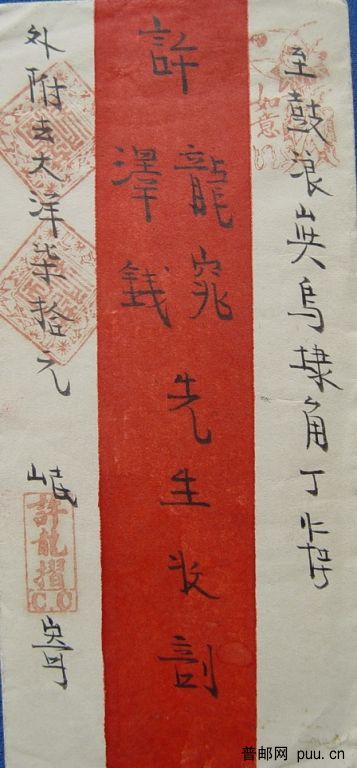 至鼓浪嶼烏埭角丁
如意
許龍窕
澤錢
先生收剖
外附去大洋柒拾元
岷
許龍摺
C.O
寄
普邮网 puu.cn